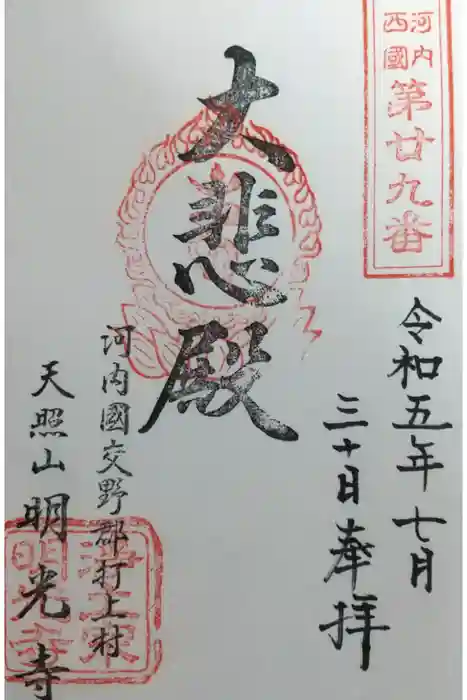 西國
河内
第廿九番
令和五年七月
三十日奉拝
大悲殿
河内國交野郡打上村
天照山明光寺
浄土宗
明光寺